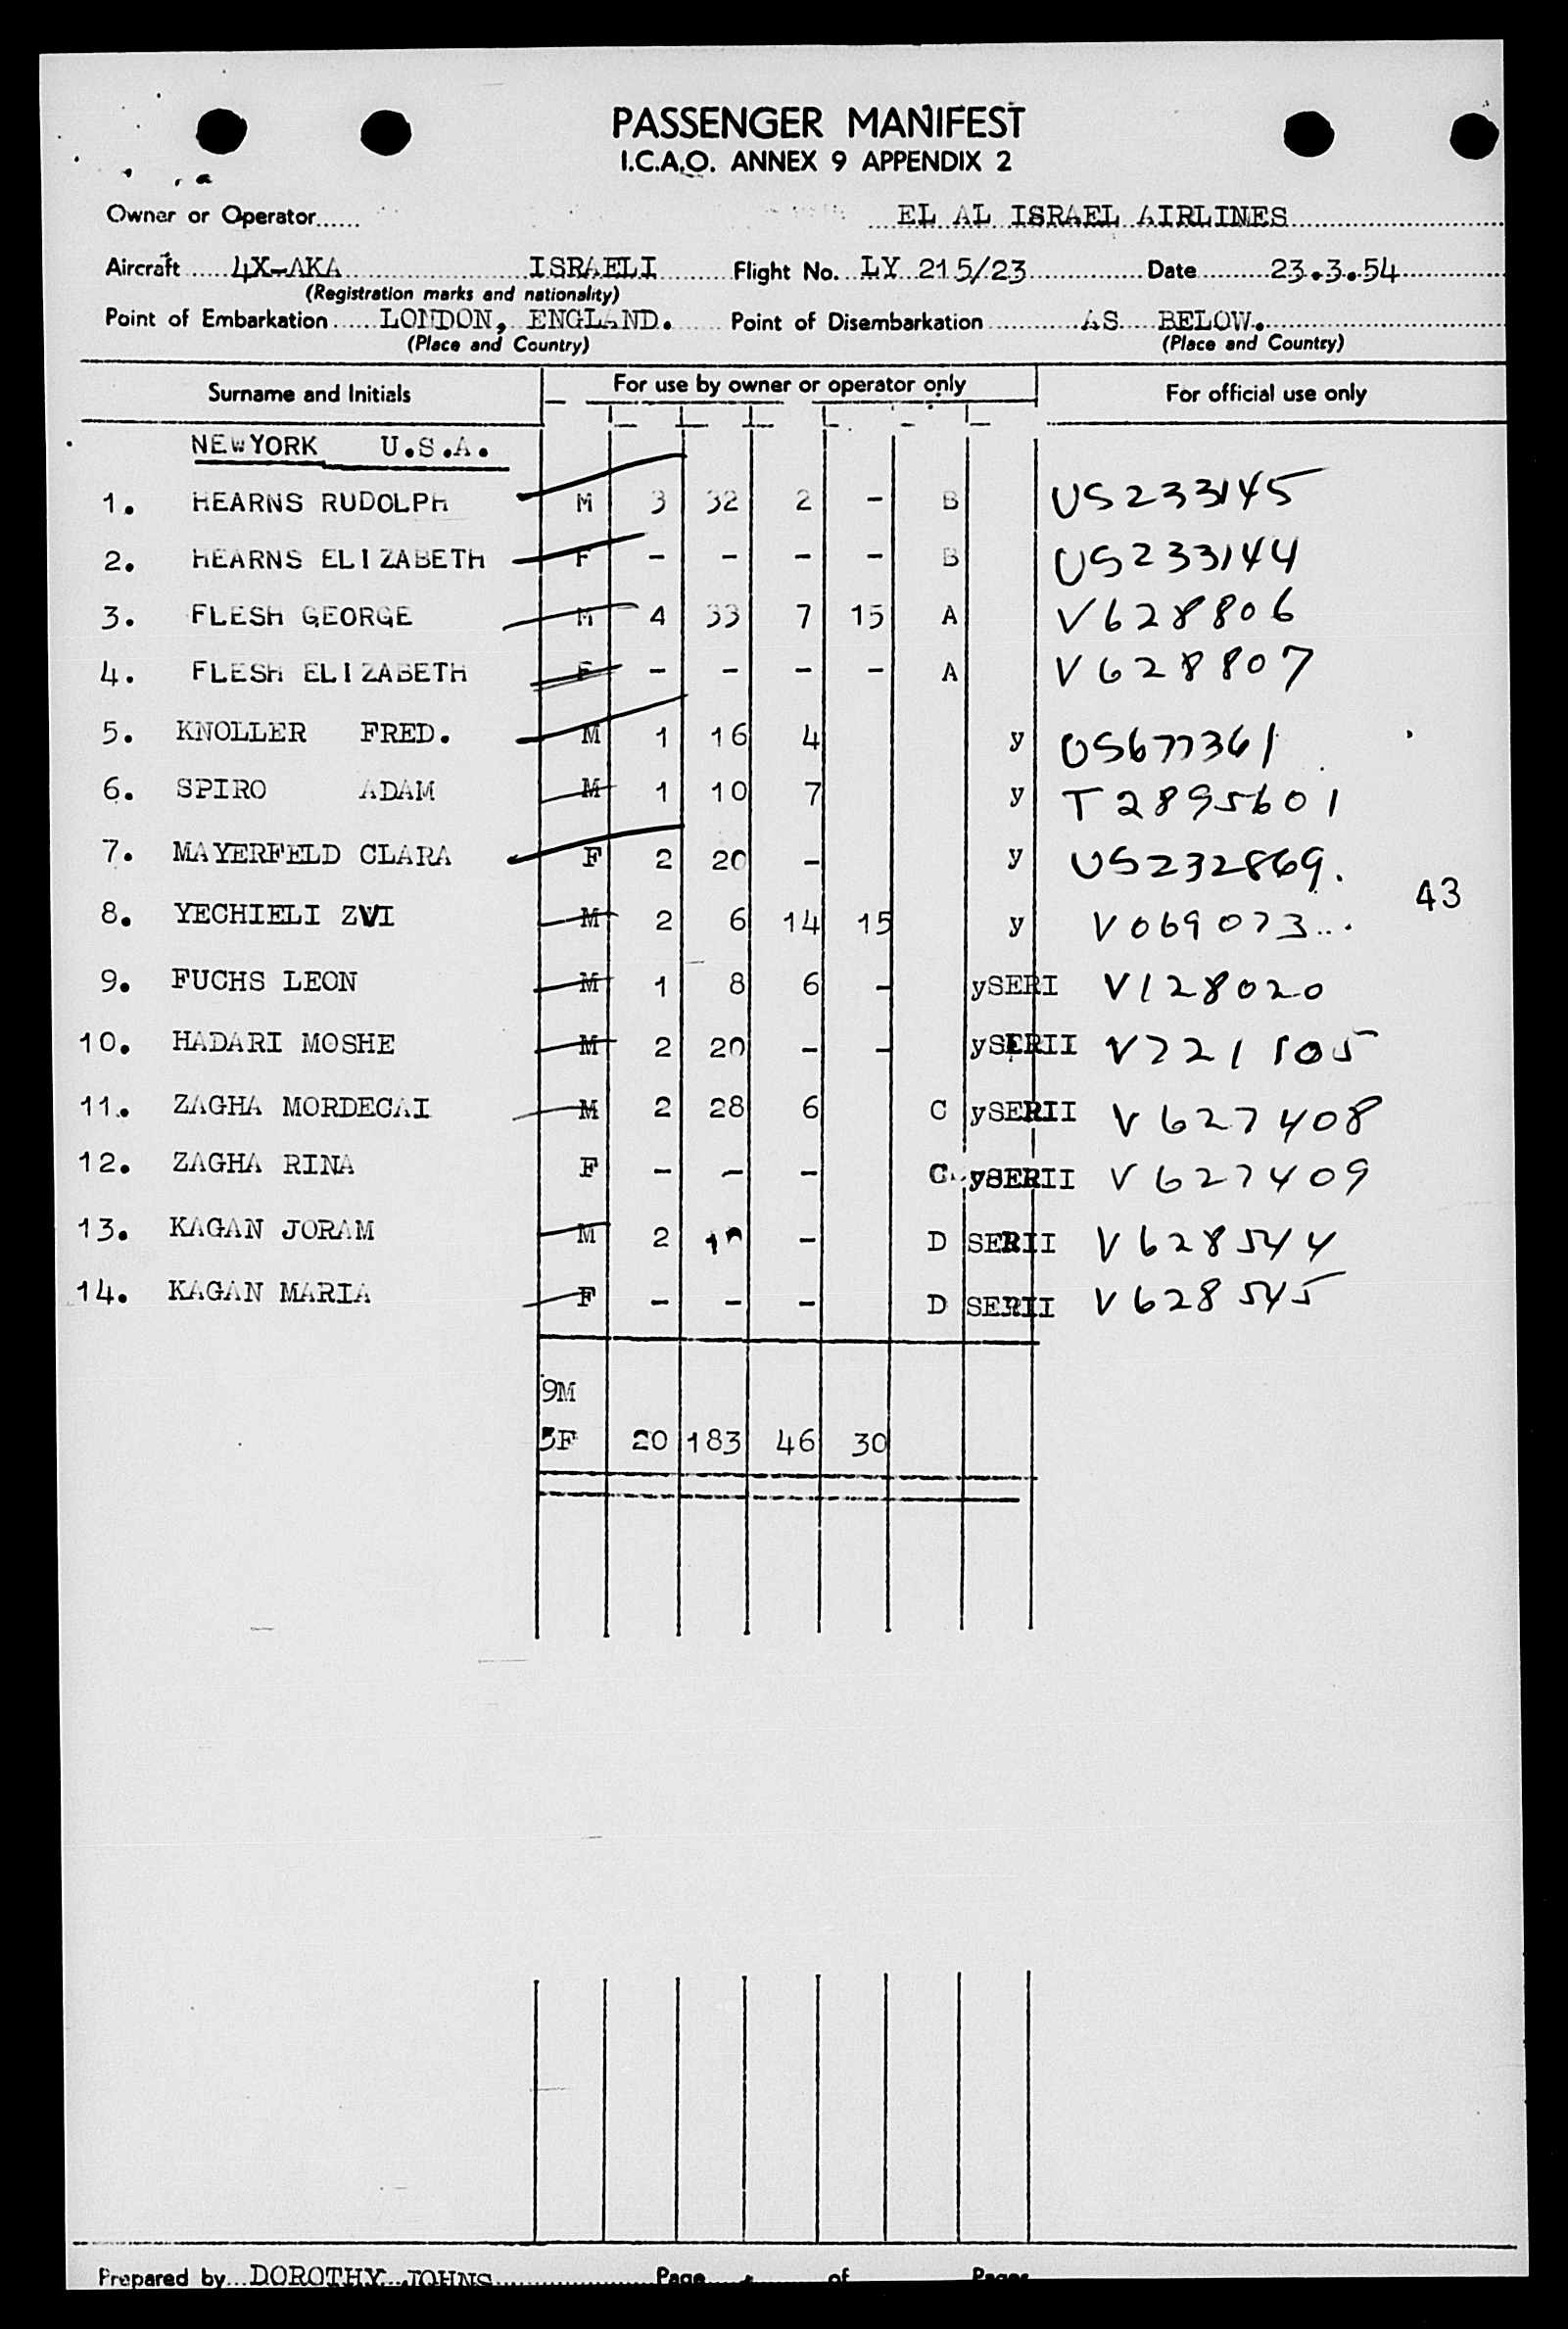 PASSENGER MANIFEST
I.C.A.O. ANNEX 9 APPENDIX 2
Owner or Operator...... EL AL ISRAEL AIRLINES
Aircraft 4X-AKA ISRAELI Flight No. LY 215/23 Date 23.3.54
(Registration marks and nationality)
Point of Embarkation LONDON, ENGLAND. Point of Disembarkation AS BELOW.
(Place and Country) (Place and Country)
Surname and Initials For use by owner or operator only For official use only
NEWYORK U.S.A.
1. HEARNS RUDOLPH M 3 32 2 - B US233145
2. HEARNS ELIZABETH F - - - - B US233144
3. FLESH GEORGE M 4 33 7 15 A V628806
4. FLESH ELIZABETH F - - - - A V628807
5. KNOLLER FRED. M 1 16 4 y US677361
6. SPIRO ADAM M 1 10 7 y T2895601
7. MAYERFELD CLARA F 2 20 - y US232869.
43
8. YECHIELI ZVI M 2 6 14 15 y V069073...
9. FUCHS LEON M 1 8 6 - ySERI V128020
10. HADARI MOSHE M 2 20 - - ySERII V221505
11. ZAGHA MORDECAI M 2 28 6 C ySERII V627408
12. ZAGHA RINA F - - - C ySERII V627409
13. KAGAN JORAM M 2 - D SERII V628544
14. KAGAN MARIA F - - - D SERII V628545
9M
5F 20 183 46 30
Prepared by DOROTHY JOHNS Page of Pages